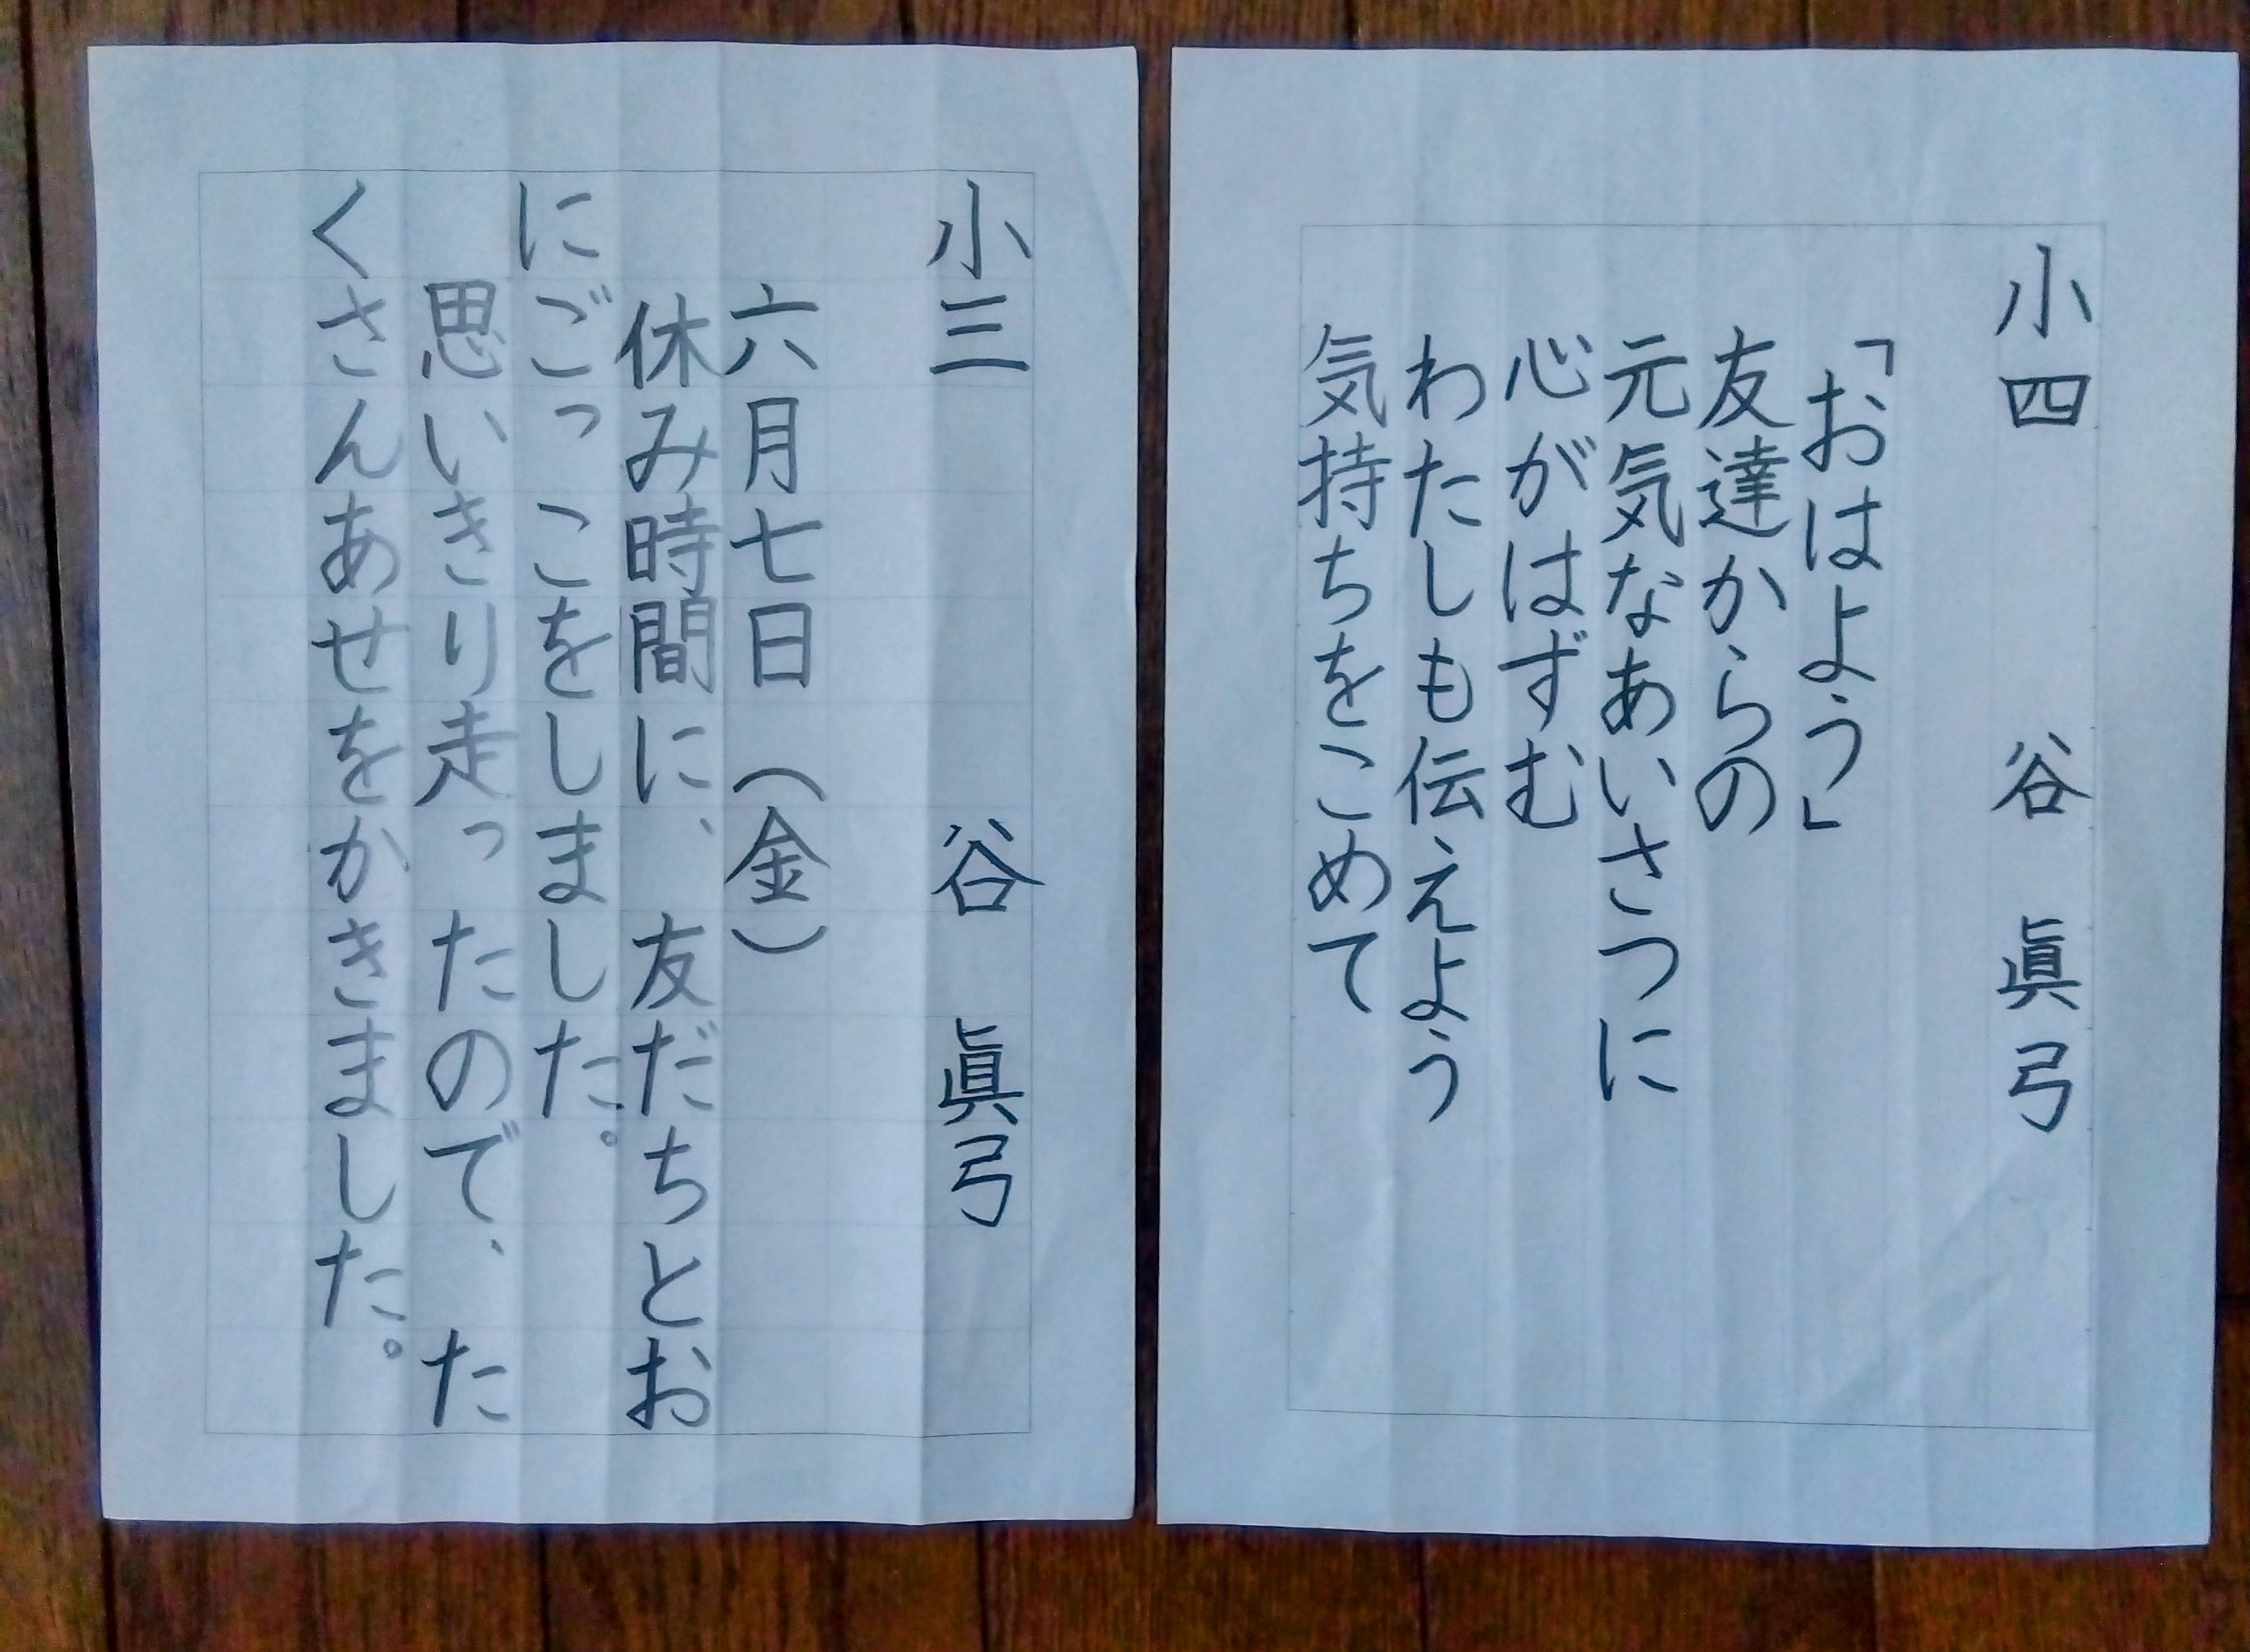 小四　谷　眞弓
「おはよう」
友達からの
元気なあいさつに
心がはずむ
わたしも伝えよう
気持ちをこめて
小三　谷　眞弓
六月七日（金）
休み時間に、友だちとお
にごっこをしました。
思いきり走ったので、た
くさんあせをかきました。